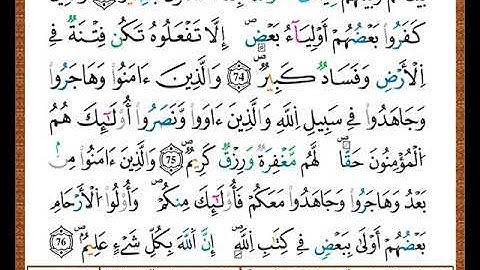 كَفَرُواْ بَعْضُهُمْ أَوْلِيَآءُ بَعْضٍ إِلَّا تَفْعَلُوهُ تَكُن فِتْنَةٌ فِے
اِ۬لْأَرْضِ وَفَسَادٌ كَبِيرٌ 74 وَالذِينَ ءَامَنُواْ وَهَاجَرُواْ
وَجَاهَدُواْ فِے سَبِيلِ اِ۬للَّهِ وَالذِينَ ءَاوَواْ وَّنَصَرُواْ أُوْلَٰٓئِكَ هُمُ
اُ۬لْمُؤْمِنُونَ حَقّاً لَّهُم مَّغْفِرَةٌ وَرِزْقٌ كَرِيمٌ 75 وَالذِينَ ءَامَنُواْ مِنۢ
بَعْدُ وَهَاجَرُواْ وَجَاهَدُواْ مَعَكُمْ فَأُوْلَٰٓئِكَ مِنكُمْ وَأُوْلُواْ اُ۬لْأَرْحَامِ
بَعْضُهُمْ أَوْلَىٰ بِبَعْضٍ فِے كِتَٰبِ اِ۬للَّهِ إِنَّ اَ۬للَّهَ بِكُلِّ شَےْءٍ عَلِيمٌ 76